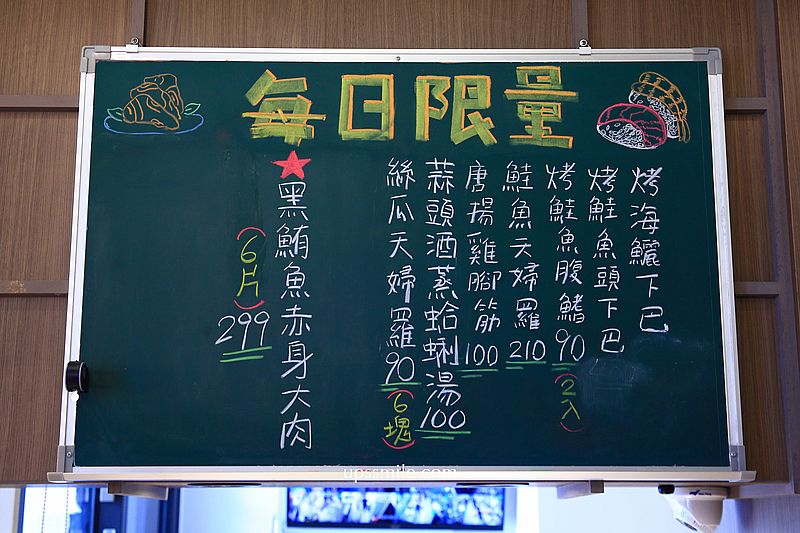 每日限量
烤海鱺下巴
烤鮭魚頭下巴
烤鮭魚腹鰭90(2入)
鮭魚天婦羅210
唐揚雞腳筋100
蒜頭酒蒸蛤蜊湯100
絲瓜天婦羅90(6塊)
★黑鮪魚赤身大肉
(6片)
299
upssmile.com